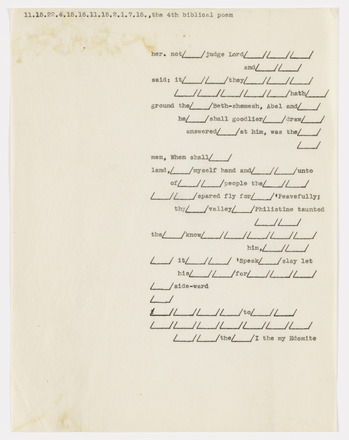 11.15.22.4.15.16.11.15.2.1.7.15.,the 4th biblical poem
her. not/____/judge Lord/____//____//____/
and/____//____/
said; it/____//____/they/____//____//____//____/
/____//____//____//____//____//____/hath/____/
ground the/____/Beth-shemesh, Abel and/____/
he/____/shall goodlier/____/draw/____/
answered/____/at him, was the/____/
/____/
men, When shall/____/
land,/____/myself hand and/____//____/unto
of/____//____/people the/____//____/
/____//____/spared fly for/____/'Peavefully;
thy/____/valley/____/Philistine taunted
/____//____/
the/____/know/____//____//____//____//____//____/
him,/____//____/
/____/ it/____//____/ 'Speak/____/slay let
his/____//____/for/____//____//____/
/____/side-ward
/____/
/____//____//____//____/to/____//____/
/____//____//____//____//____//____//____/
/____//____/the/____/I the my Edomite